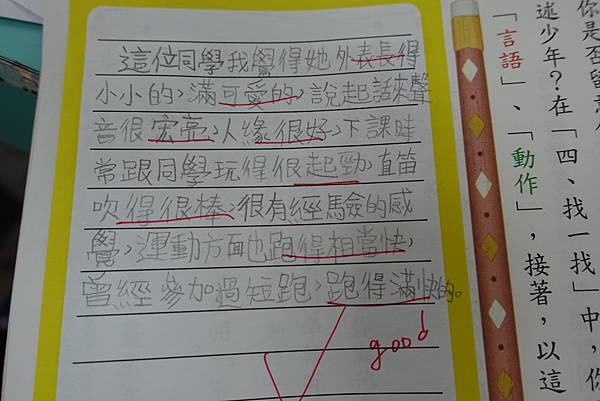 這位同學我覺得她外表長得
小小的,滿可愛的,說起話來聲
音很宏亮,人緣很好,下課時
常跟同學玩得很起勁,直笛
吹得很棒,很有經驗的感
覺,運動方面也跑得相當快,
曾經參加過短跑,跑得滿快的。
good
述少年?在「四、找一找」中,你
「言語」、「動作」,接著,以這